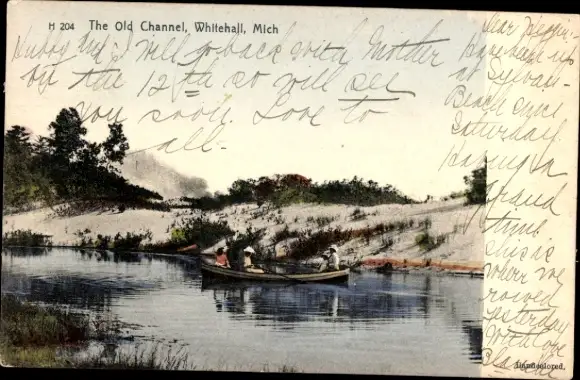 H 204 The Old Channel, Whitehall, Mich
Hubby and I will go back with Mother
by the 12th so will see
you soon. Love to
all.-
Dear
Have been up
at Sylvan
Beach since
Saturday.
Having a
grand
time.
This is
where we
rowed
yesterday
With love
Blanche
Handcolored.